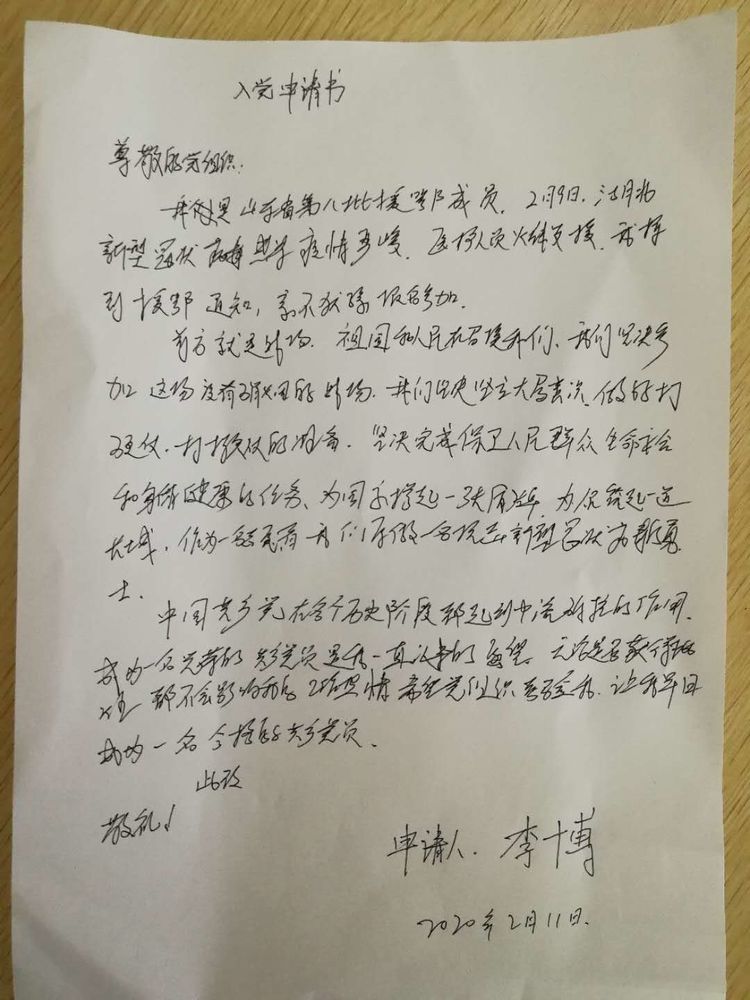 入党申请书
尊敬的党组织:
我是山东省第八批援鄂成员, 2月9日, 湖北
新型冠状病毒 疫情严峻, 医护人员火线支援, 我接
到援鄂通知, 报名参加.
前方就是战场. 祖国和人民在召唤我们, 我们坚决参
加这场没有硝烟的战场. 我们坚决 大局意识, 做好打
硬仗, 打 仗的准备. 坚决完成保卫人民群众生命安全
和身体健康的任务, 为国家撑起一 , 为人民 起一道
长城, 作为一 我们 做一名 新型冠状 勇
士.
中国共产党在各个历史阶段都起到中流砥柱的作用.
成为一名光荣的共产党员是我一直以来的 . 无论是否
都不会影响我的工作热情 希望党组织考验我, 让我早日
成为一名合格的共产党员.
此致
敬礼!
申请人: 李博
2020年2月11日.